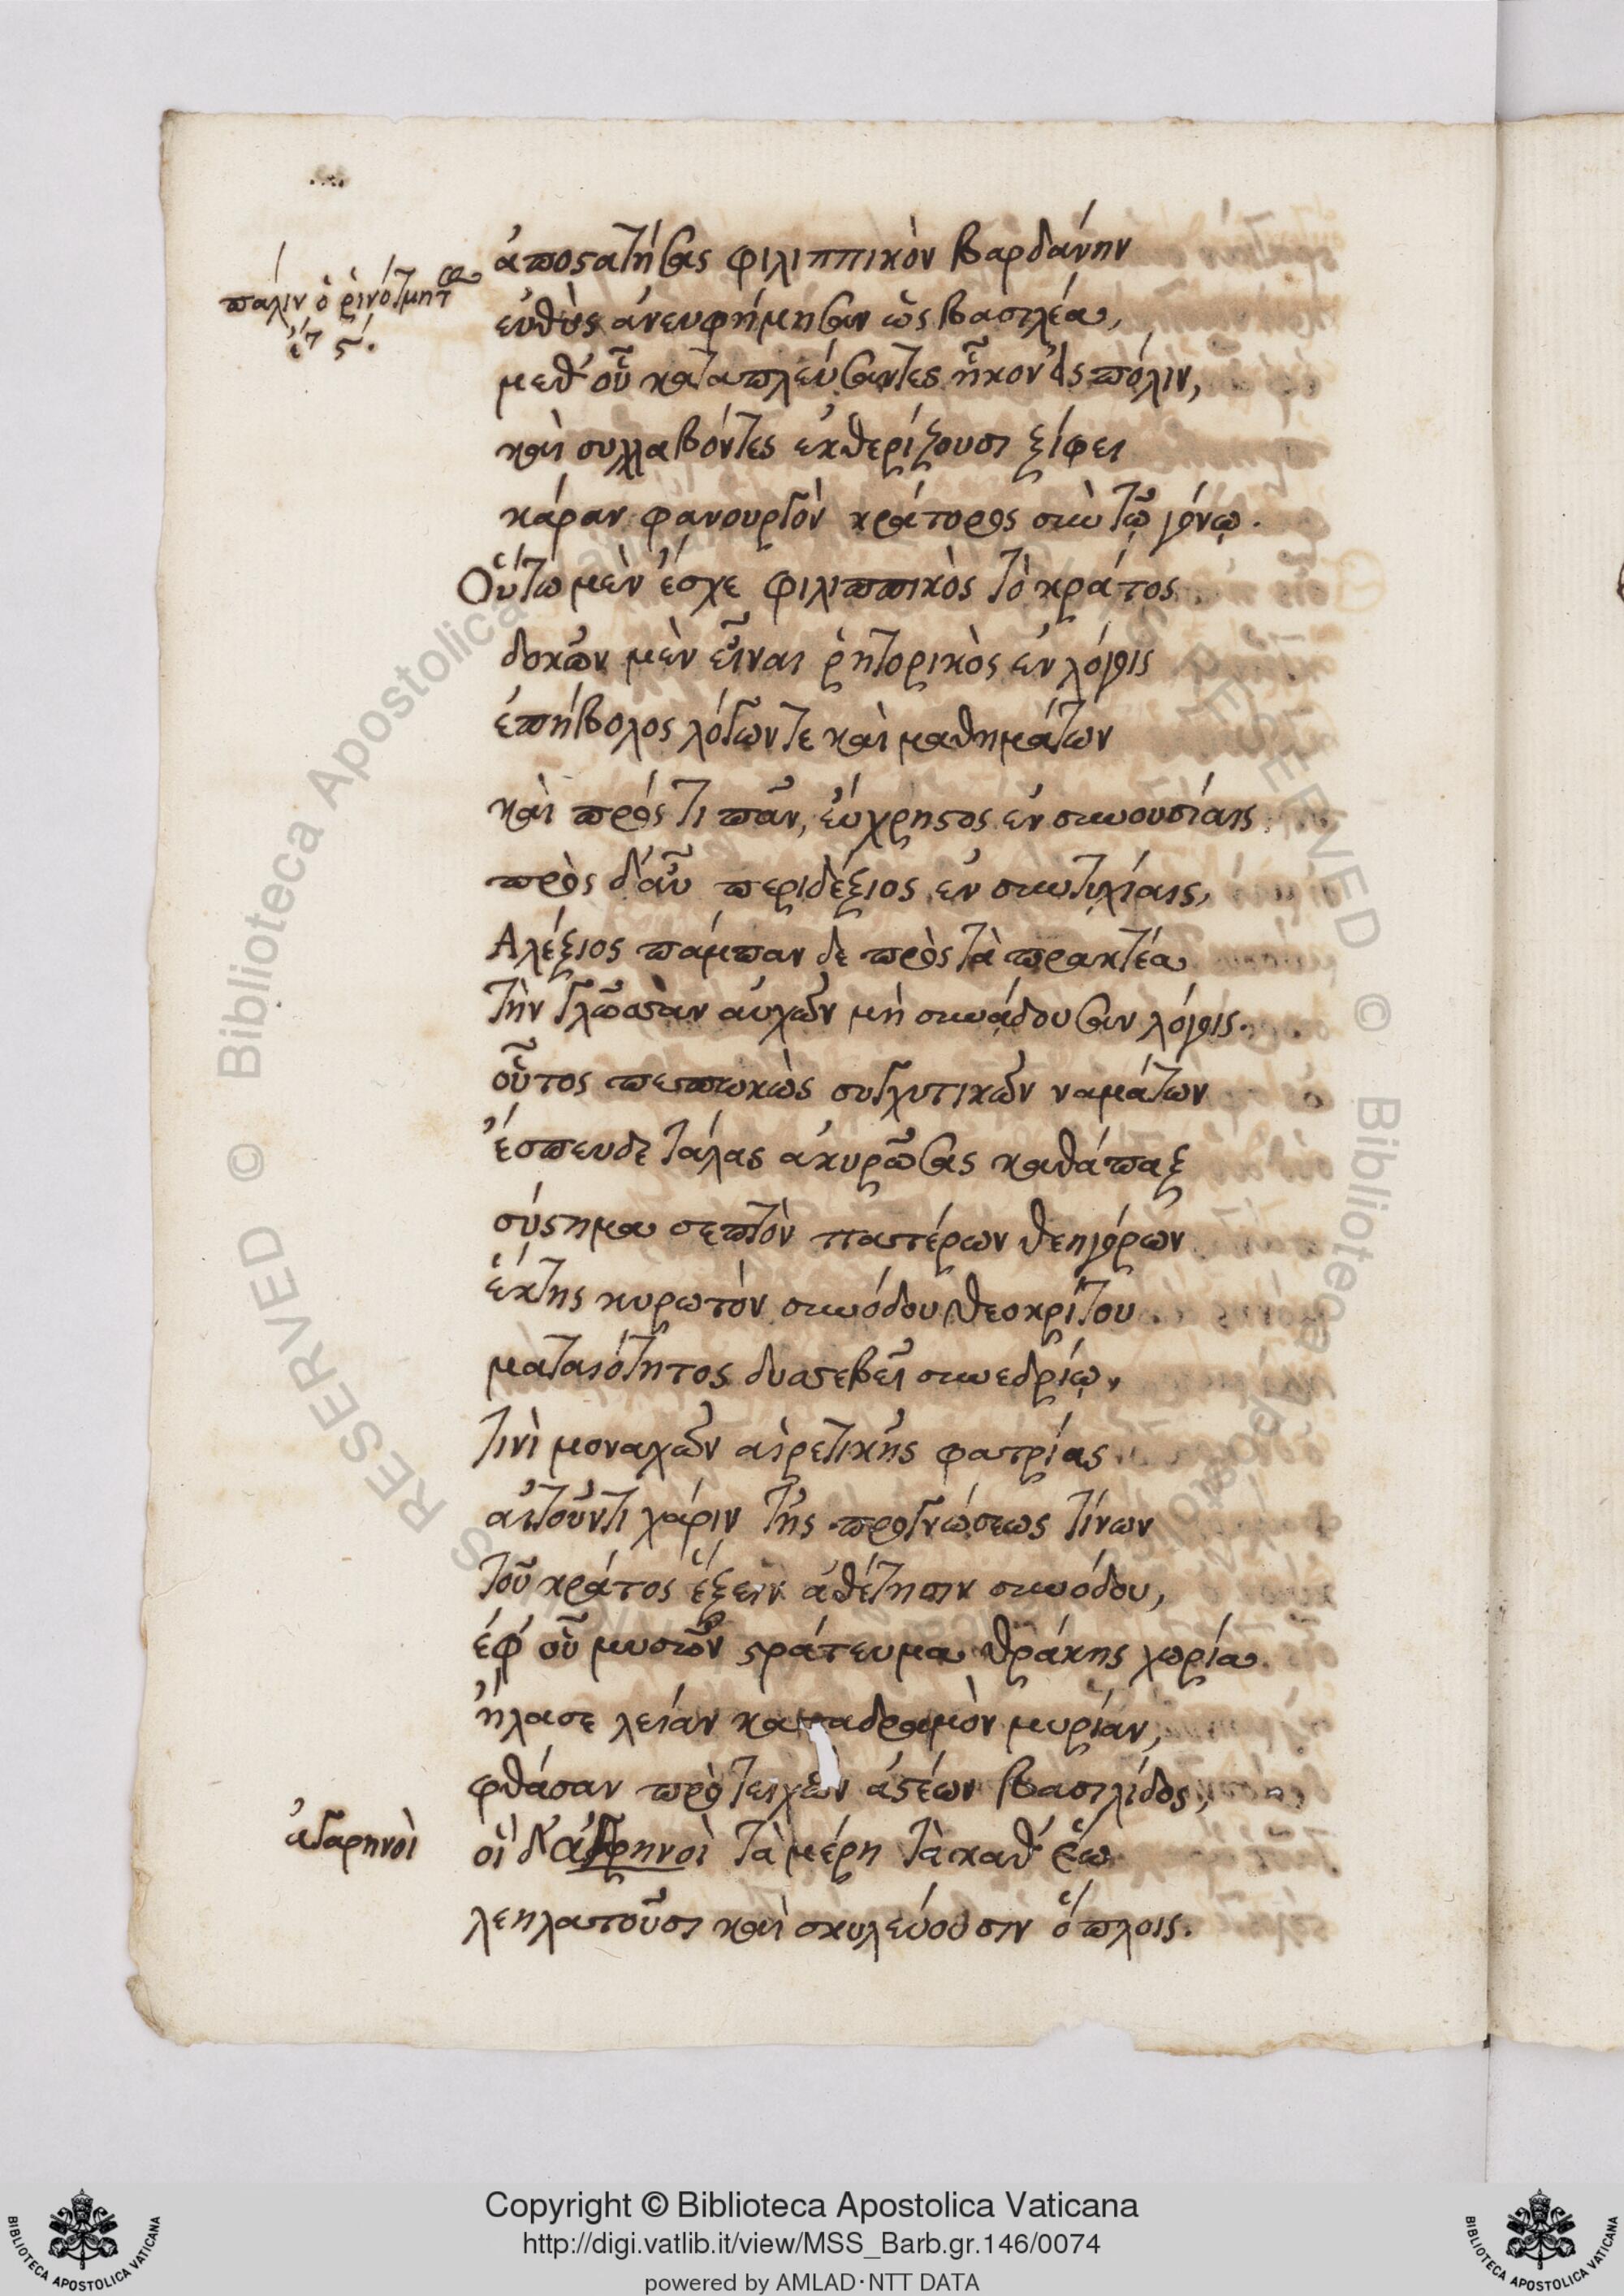 ἀποστατήσας φιλιππικὸν βαρδάνην
πάλιν ὁ ῥινότμητος
ἔτ ϛ΄.
εὐθὺς ἀνευφήμησαν ὡς βασιλέα,
μεθ' οὗ καταπλεύσαντες ἧκον εἰς πόλιν,
καὶ συλλαβόντες ἐκθερίζουσι ξίφει
κάραν φανουργὸν κράτορος σὺν τῷ γόνῳ.
Οὕτω μὲν ἔσχε φιλιππικὸς τὸ κράτος
δοκῶν μὲν εἶναι ῥητορικὸς ἐν λόγοις
ἐπήβολος λόγων τε καὶ μαθημάτων
καὶ πρός τι πᾶν, εὔχρηστος ἐν συνουσίαις
πρὸς δ' αὖ περιδέξιος ἐν συντυχίαις,
Αλέξιος πάμπαν δε πρὸς τὰ πρακτέα
τὴν γλῶσσαν αὐχῶν μὴ συνάδουσαν λόγοις.
οὗτος πεπωκὼς συγχυτικῶν ναμάτων
ἔσπευδε τάλας ἀκυρῶσας καθάπαξ
σύστημα σεπτὸν πατέρων θεηγόρων
ἕκτης κυρωτὸν συνόδου θεοκρίτου
ματαιότητος δυσσεβεῖ συνεδρίῳ,
τινὶ μοναχῶν αἱρετικῆς φατρίας
αἰτοῦντι χάριν τῆς προγνώσεως τίνων
τοῦ κράτος ἕξειν ἀθέτησιν συνόδου,
ἐφ' οὗ μυσῶν στράτευμα θράκης χωρία
ἤλασε λείαν καταδραμὸν μυρίαν,
φθάσαν πρὸ τειχῶν ἀστέων βασιλίδος,
ἀγαρηνοὶ
οἱ δ' ἀγαρηνοὶ τὰ μέρη τὰ καθ' ἕω
λεηλατοῦσι καὶ σκυλεύουσιν ὅπλοις.
Copyright © Biblioteca Apostolica Vaticana
http://digi.vatlib.it/view/MSS_Barb.gr.146/0074
powered by AMLAD·NTT DATA